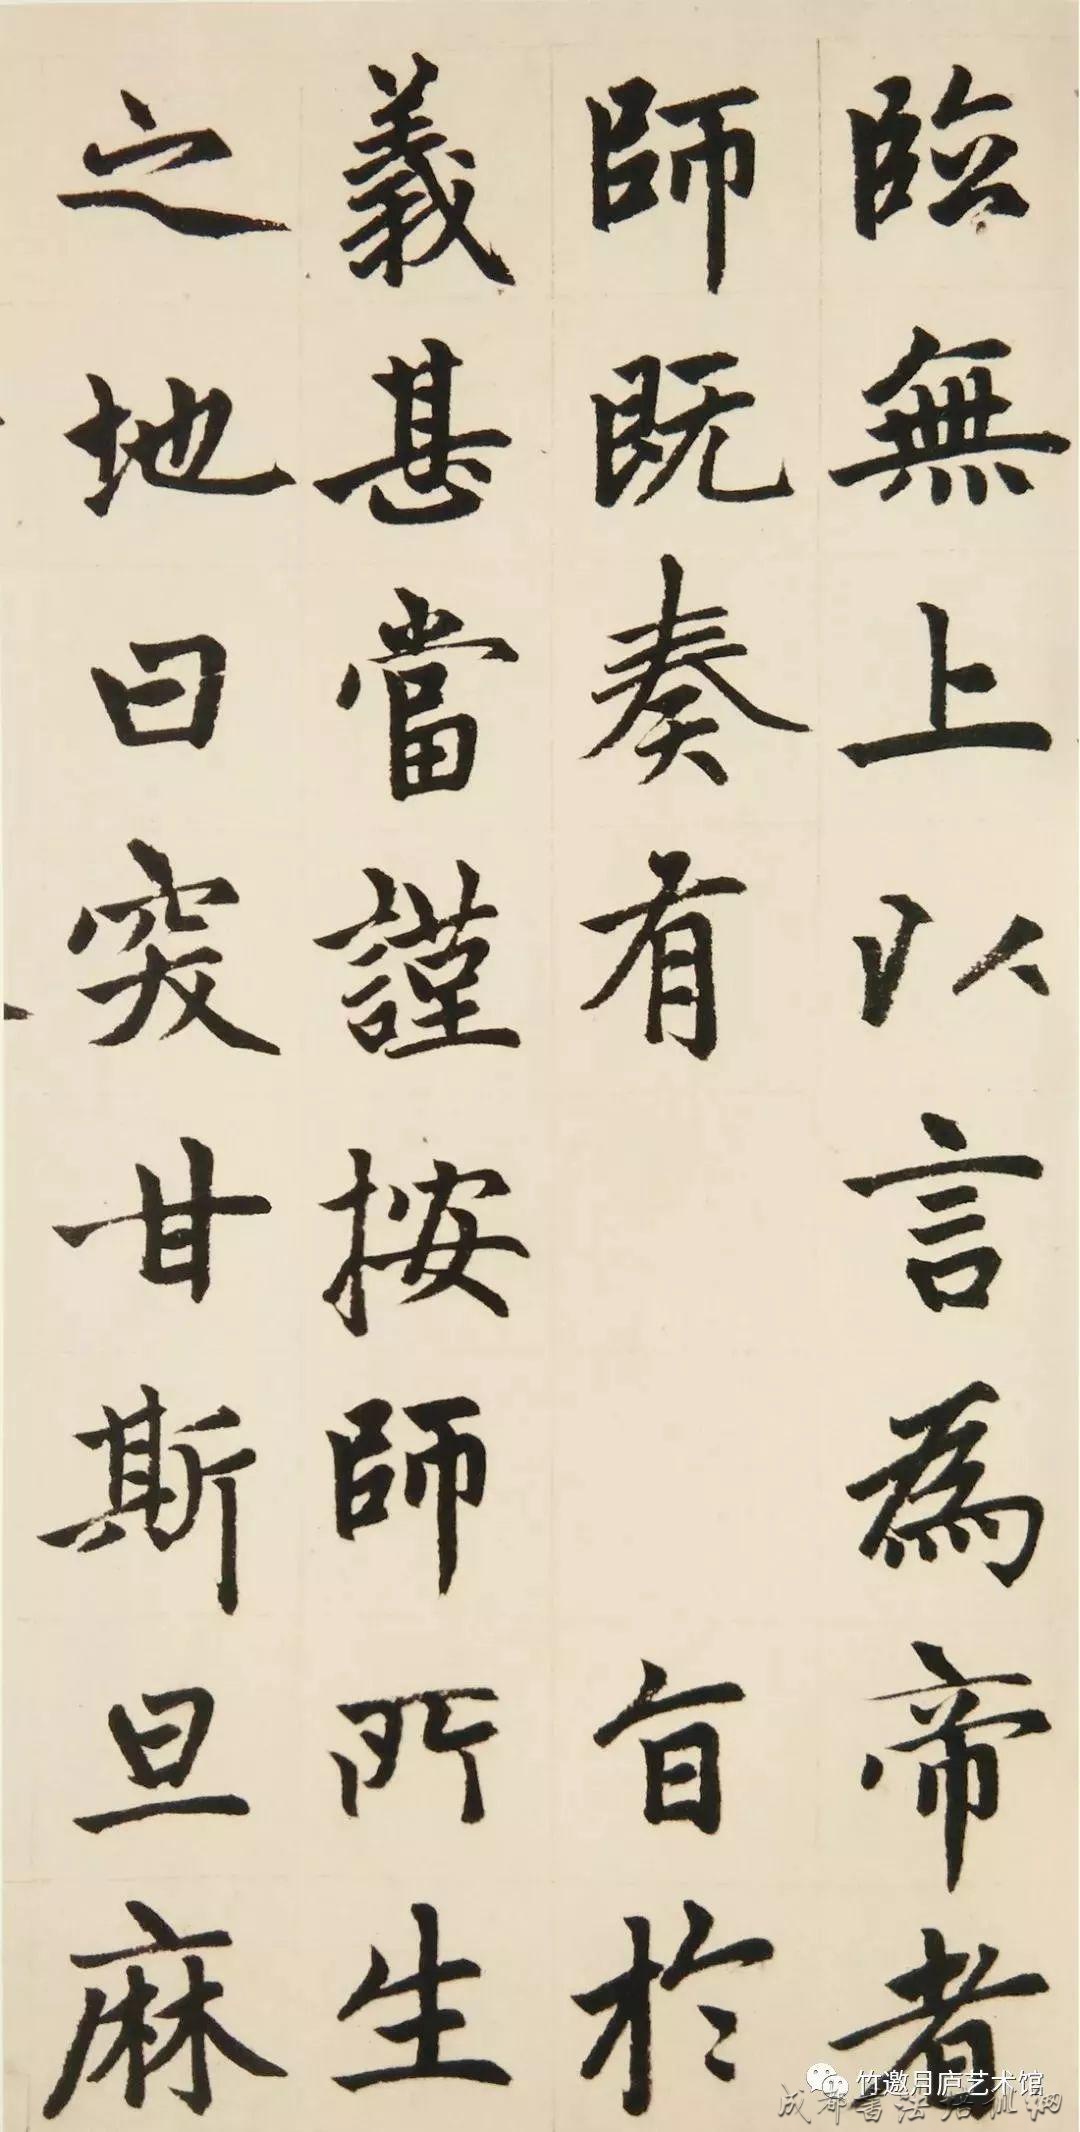 臨無上以言為帝者
師既奏有旨於
義甚當謹按師所生
之地曰突甘斯旦麻
竹邀月庐艺术馆
成都书法培训网